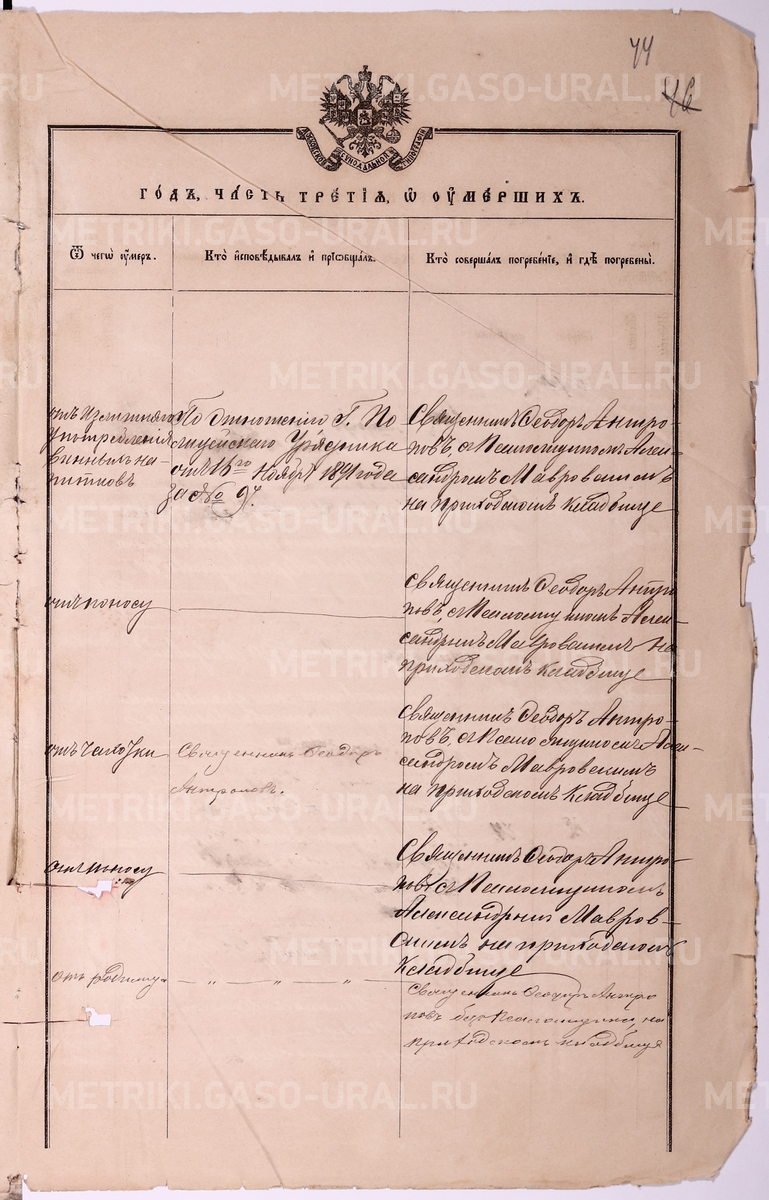 44
46
МОСКОВСКОЙ СѴНОДАЛЬНОЙ ТИПОГРАФІИ
ГОДЪ, ЧАСТЬ ТРЕТІЯ, Ѡ ОУМЕРШИХЪ.
Ѿ чегѡ оумеръ.
Кто исповѣдывалъ и прїѡбщалъ.
Кто совершалъ погребеніе, и гдѣ погребены.
отъ Излишняго
употребленія
винныхъ на-
питковъ
По отношенію Г. По
лицейскаго Урядника
отъ 16го Ноября 1891 года
за № 97.
Священникъ Ѳеодоръ Антро-
повъ, съ Псаломщикомъ Алек-
сандромъ Мавровскимъ
на приходскомъ кладбище
отъ поносу
Священникъ Ѳеодоръ Антро-
повъ, съ Псаломщикомъ Алек-
сандромъ Мавровскимъ на
приходскомъ кладбище
отъ чахотки
Священникъ Ѳеодоръ
Антроповъ.
Священникъ Ѳеодоръ Антро-
повъ, съ Псаломщикомъ Алек-
сандромъ Мавровскимъ
на приходскомъ кладбище
отъ поносу
Священникъ Ѳеодоръ Антро-
повъ съ Псаломщикомъ
Александромъ Мавров-
скимъ на приходскомъ
кладбище
отъ родимца
— „ — „ — „ —
Священникъ Ѳеодоръ Антро
повъ безъ Псаломщика, на
приходскомъ кладбище
METRIKI.GASO-URAL.RU